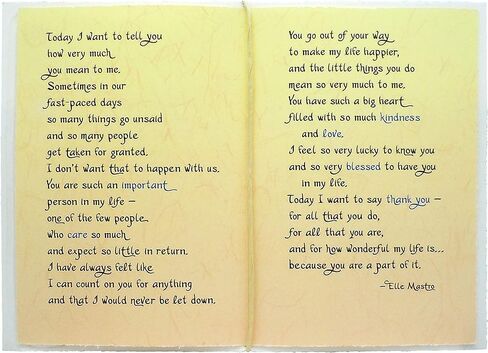 Today I want to tell you
how very much
you mean to me.
Sometimes in our
fast-paced days
so many things go unsaid
and so many people
get taken for granted.
I don't want that to happen with us.
You are such an important
person in my life —
one of the few people
who care so much
and expect so little in return.
I have always felt like
I can count on you for anything
and that I would never be let down.
You go out of your way
to make my life happier,
and the little things you do
mean so very much to me.
You have such a big heart
filled with so much kindness
and love.
I feel so very lucky to know you
and so very blessed to have you
in my life.
Today I want to say thank you —
for all that you do,
for all that you are,
and for how wonderful my life is...
because you are a part of it.
—Elle Mastro